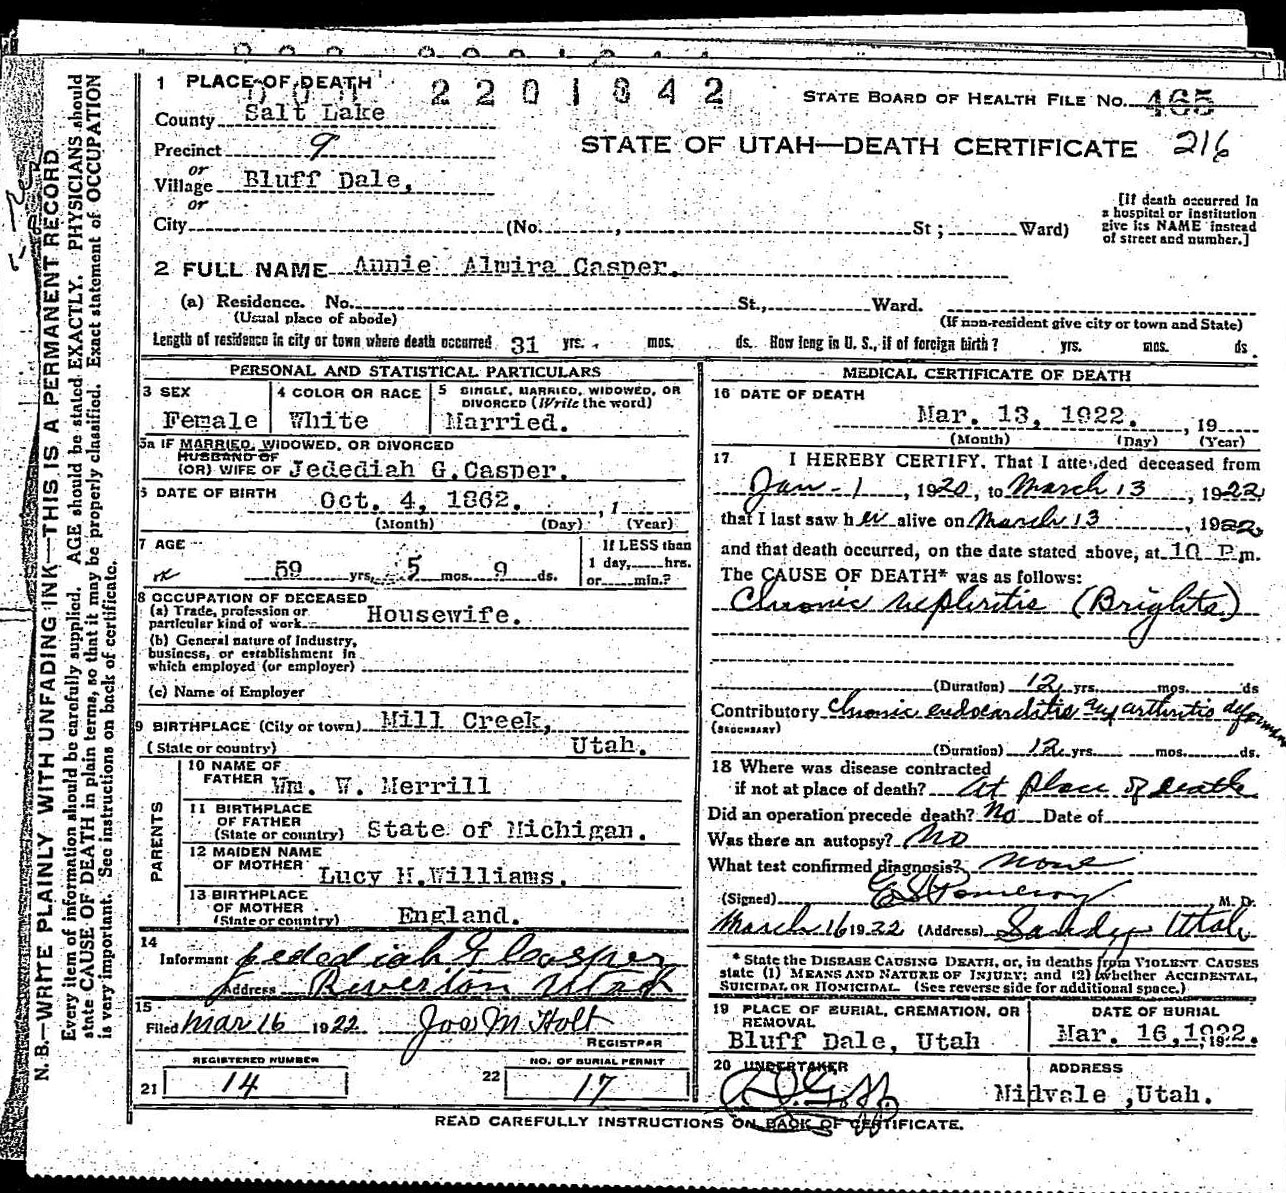 1 PLACE OF DEATH
2201842
STATE BOARD OF HEALTH FILE NO. 465
County Salt Lake
STATE OF UTAH—DEATH CERTIFICATE 216
Precinct 9
or
Village Bluff Dale,
or
City (No. , St ; Ward)
[If death occurred in
a hospital or institution
give its NAME instead
of street and number.]
2 FULL NAME Annie Almira Casper.
(a) Residence. No. St., Ward.
(Usual place of abode) (If non-resident give city or town and State)
Length of residence in city or town where death occurred 31 yrs. mos. ds. How long in U. S., if of foreign birth? yrs. mos. ds.
PERSONAL AND STATISTICAL PARTICULARS
3 SEX
Female
4 COLOR OR RACE
White
5 SINGLE, MARRIED, WIDOWED, OR
DIVORCED (Write the word)
Married.
5a IF MARRIED, WIDOWED, OR DIVORCED
HUSBAND OF
(OR) WIFE OF Jedediah G.Casper.
6 DATE OF BIRTH Oct. 4, 1862. , 1
(Month) (Day) (Year)
7 AGE
59 yrs. 5 mos. 9 ds.
If LESS than
1 day, hrs.
or min.?
8 OCCUPATION OF DECEASED
(a) Trade, profession or
particular kind of work Housewife.
(b) General nature of industry,
business, or establishment in
which employed (or employer)
(c) Name of Employer
9 BIRTHPLACE (City or town) Mill Creek,
(State or country) Utah.
PARENTS
10 NAME OF
FATHER Wm. W. Merrill
11 BIRTHPLACE
OF FATHER
(State or country) State of Michigan.
12 MAIDEN NAME
OF MOTHER Lucy H.Williams.
13 BIRTHPLACE
OF MOTHER
(State or country) England.
14
Informant Jedediah G Casper
Address Riverton Utah
15
Filed Mar 16 1922 Jos M Holt
REGISTRAR
REGISTERED NUMBER
21 14
NO. OF BURIAL PERMIT
22 17
MEDICAL CERTIFICATE OF DEATH
16 DATE OF DEATH
Mar. 13, 1922. , 19
(Month) (Day) (Year)
17 I HEREBY CERTIFY, That I attended deceased from
Jan - 1 , 1920, to March 13 , 1922
that I last saw her alive on March 13 , 1922
and that death occurred, on the date stated above, at 10 P.m.
The CAUSE OF DEATH* was as follows:
Chronic nephritis (Brights)
(Duration) 12 yrs. mos. ds
Contributory Chronic endocarditis arthritis deformans
(SECONDARY)
(Duration) 12 yrs. mos. ds.
18 Where was disease contracted
if not at place of death? at place of death
Did an operation precede death? No Date of
Was there an autopsy? No
What test confirmed diagnosis? None
(Signed) E S Pomeroy M. D.
March 16 1922 (Address) Sandy Utah
* State the DISEASE CAUSING DEATH, or, in deaths from VIOLENT CAUSES
state (1) MEANS AND NATURE OF INJURY; and (2) whether ACCIDENTAL,
SUICIDAL OR HOMICIDAL. (See reverse side for additional space.)
19 PLACE OF BURIAL, CREMATION, OR
REMOVAL
Bluff Dale, Utah
DATE OF BURIAL
Mar. 16,1922.
20 UNDERTAKER
ADDRESS
Midvale ,Utah.
READ CAREFULLY INSTRUCTIONS ON BACK OF CERTIFICATE.
N. B.—WRITE PLAINLY WITH UNFADING INK—THIS IS A PERMANENT RECORD
Every item of information should be carefully supplied. AGE should be stated EXACTLY. PHYSICIANS should
state CAUSE OF DEATH in plain terms, so that it may be properly classified. Exact statement of OCCUPATION
is very important. See instructions on back of certificate.